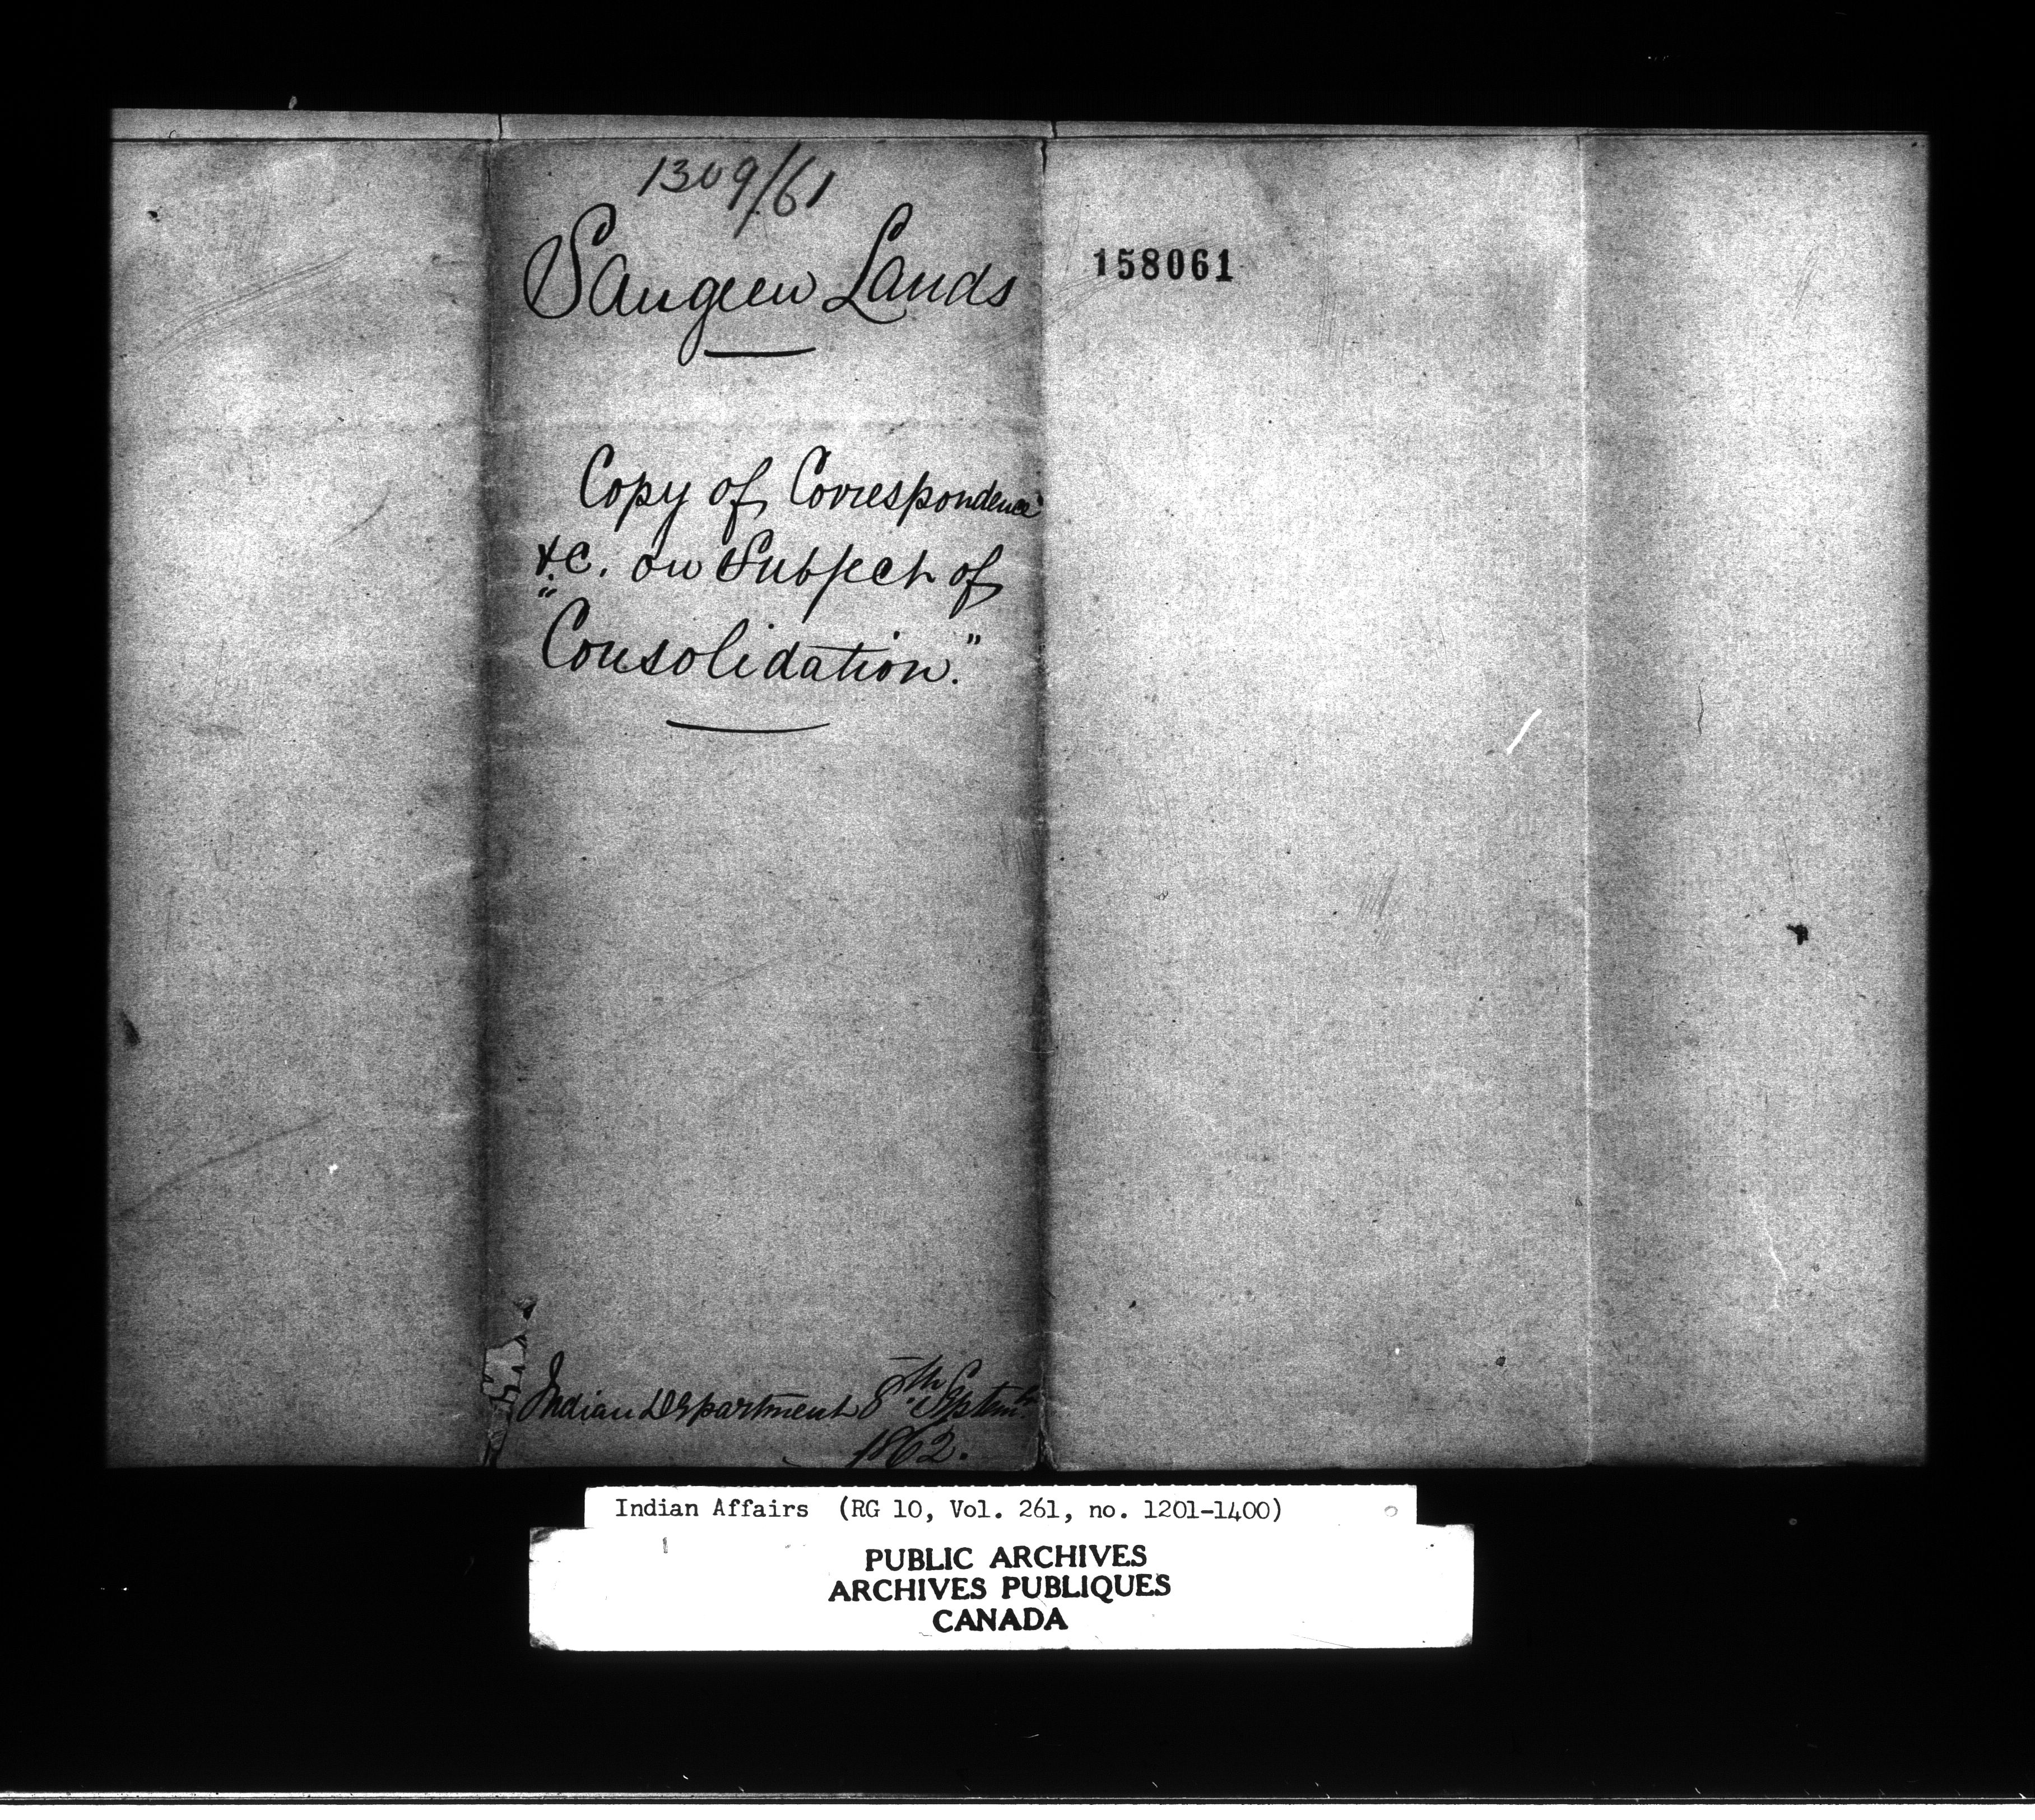 1309/61
Saugeen Lands
158061
Copy of Correspondence
&c. on Subject of
"Consolidation."
Indian Department 8th Septembr
1862.
Indian Affairs (RG 10, Vol. 261, no. 1201-1400)
PUBLIC ARCHIVES
ARCHIVES PUBLIQUES
CANADA